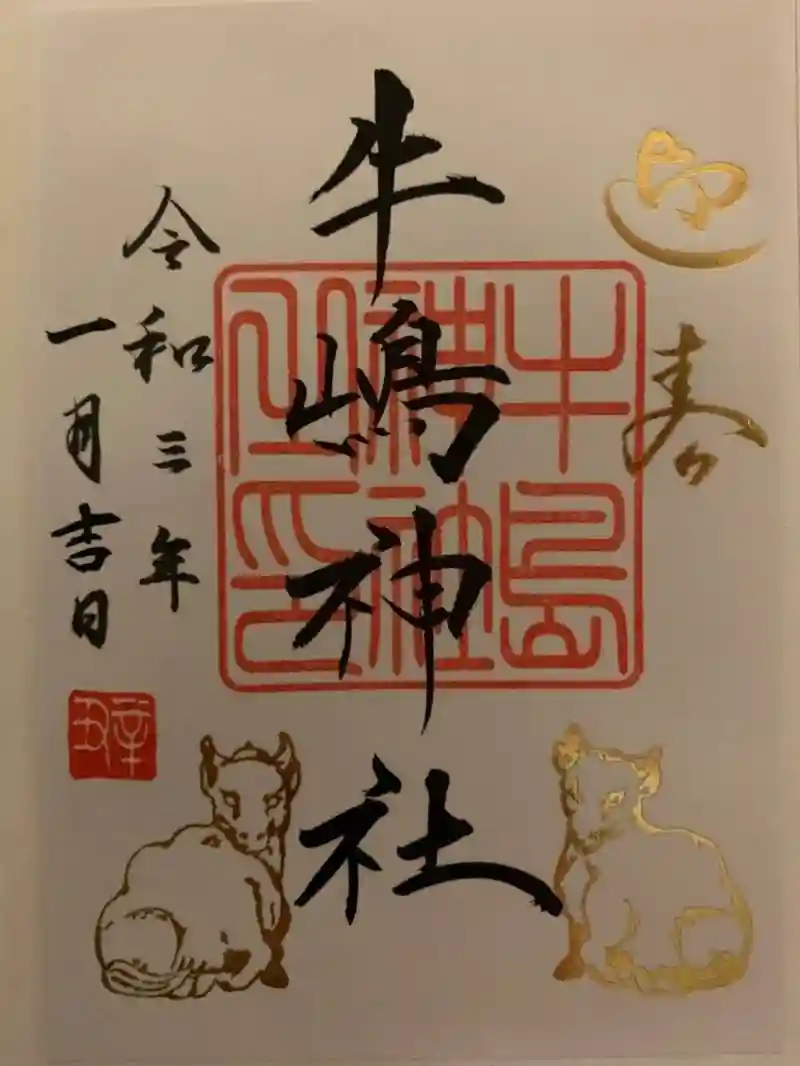 迎春
牛嶋神社
牛島
神社
印
令和三年
一月吉日
辛丑